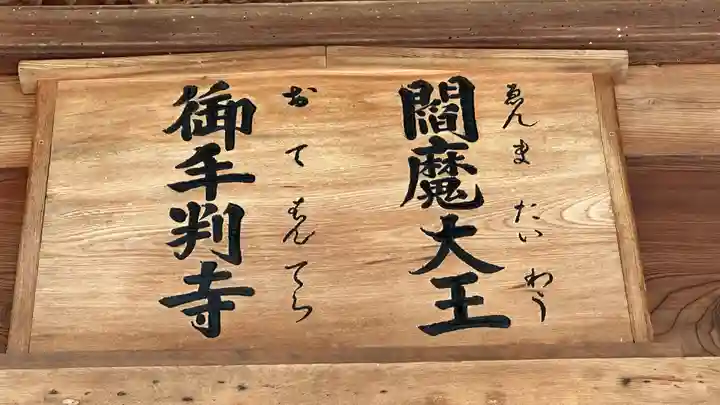 閻魔大王
ゑんまだいわう
御手判寺
おてはんてら